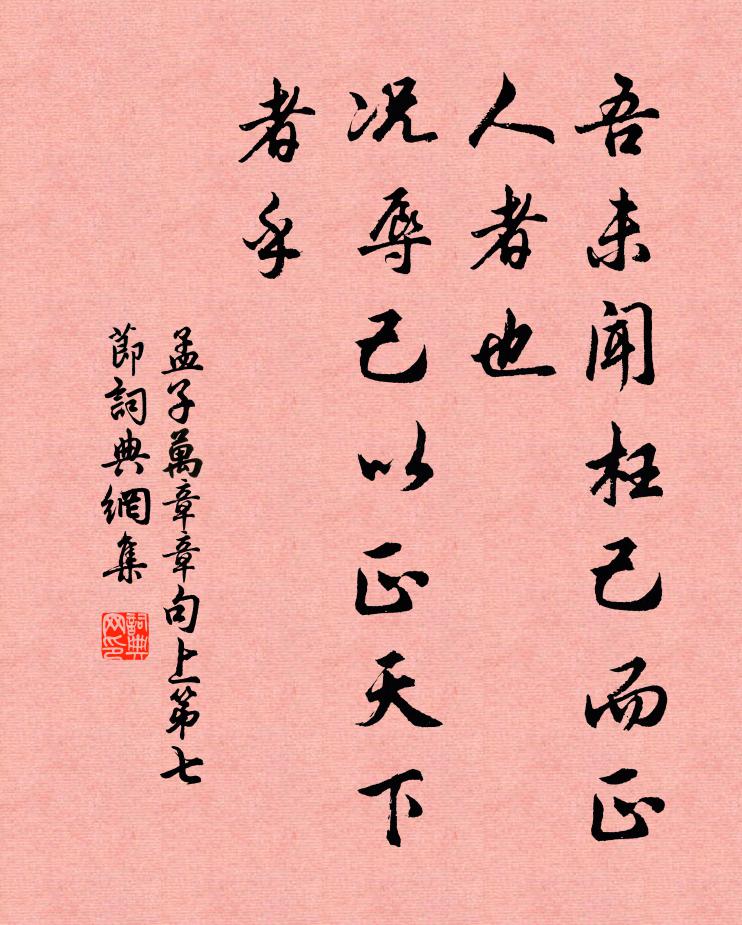 吾未聞枉己而正
人者也
況辱己以正天下
者乎
孟子萬章章句上第七
節詞典網集
詞典
网印